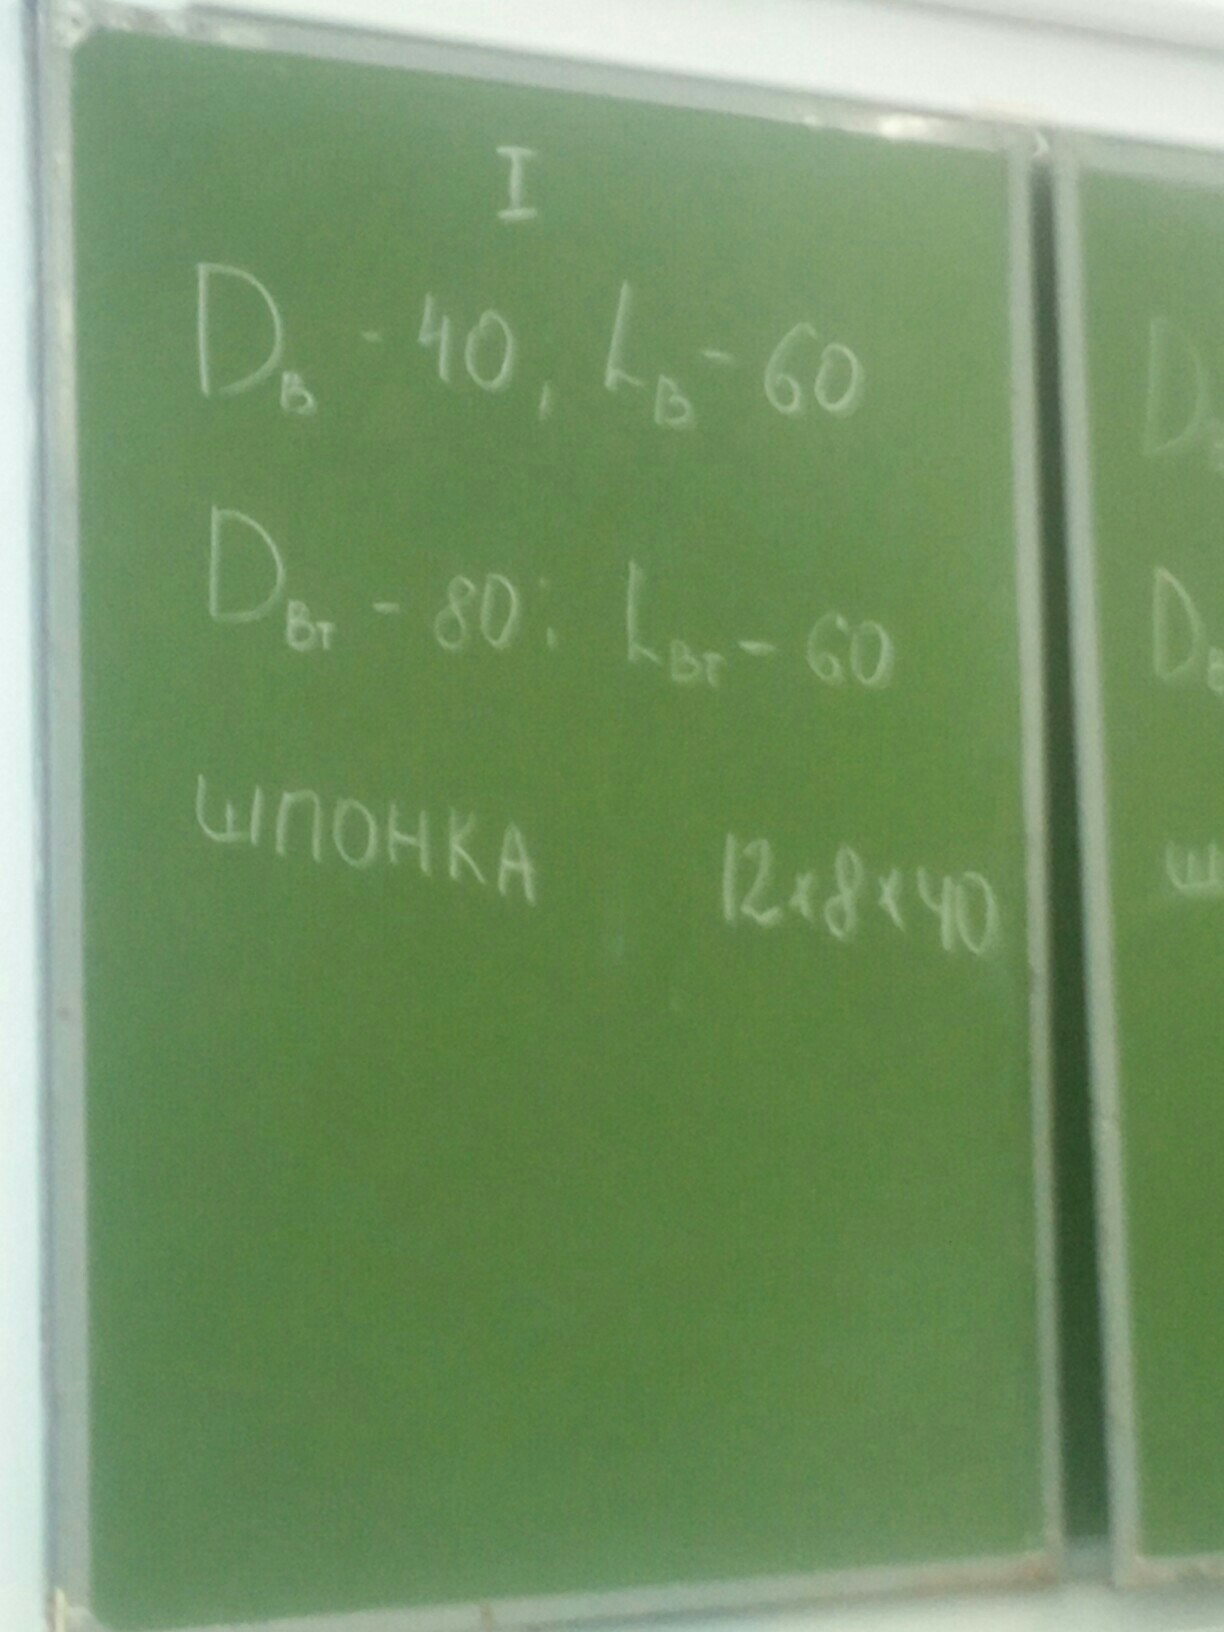 I
Dв - 40; Lв - 60
Dвт - 80; Lвт - 60
шпонка 12×8×40
D
D
ш